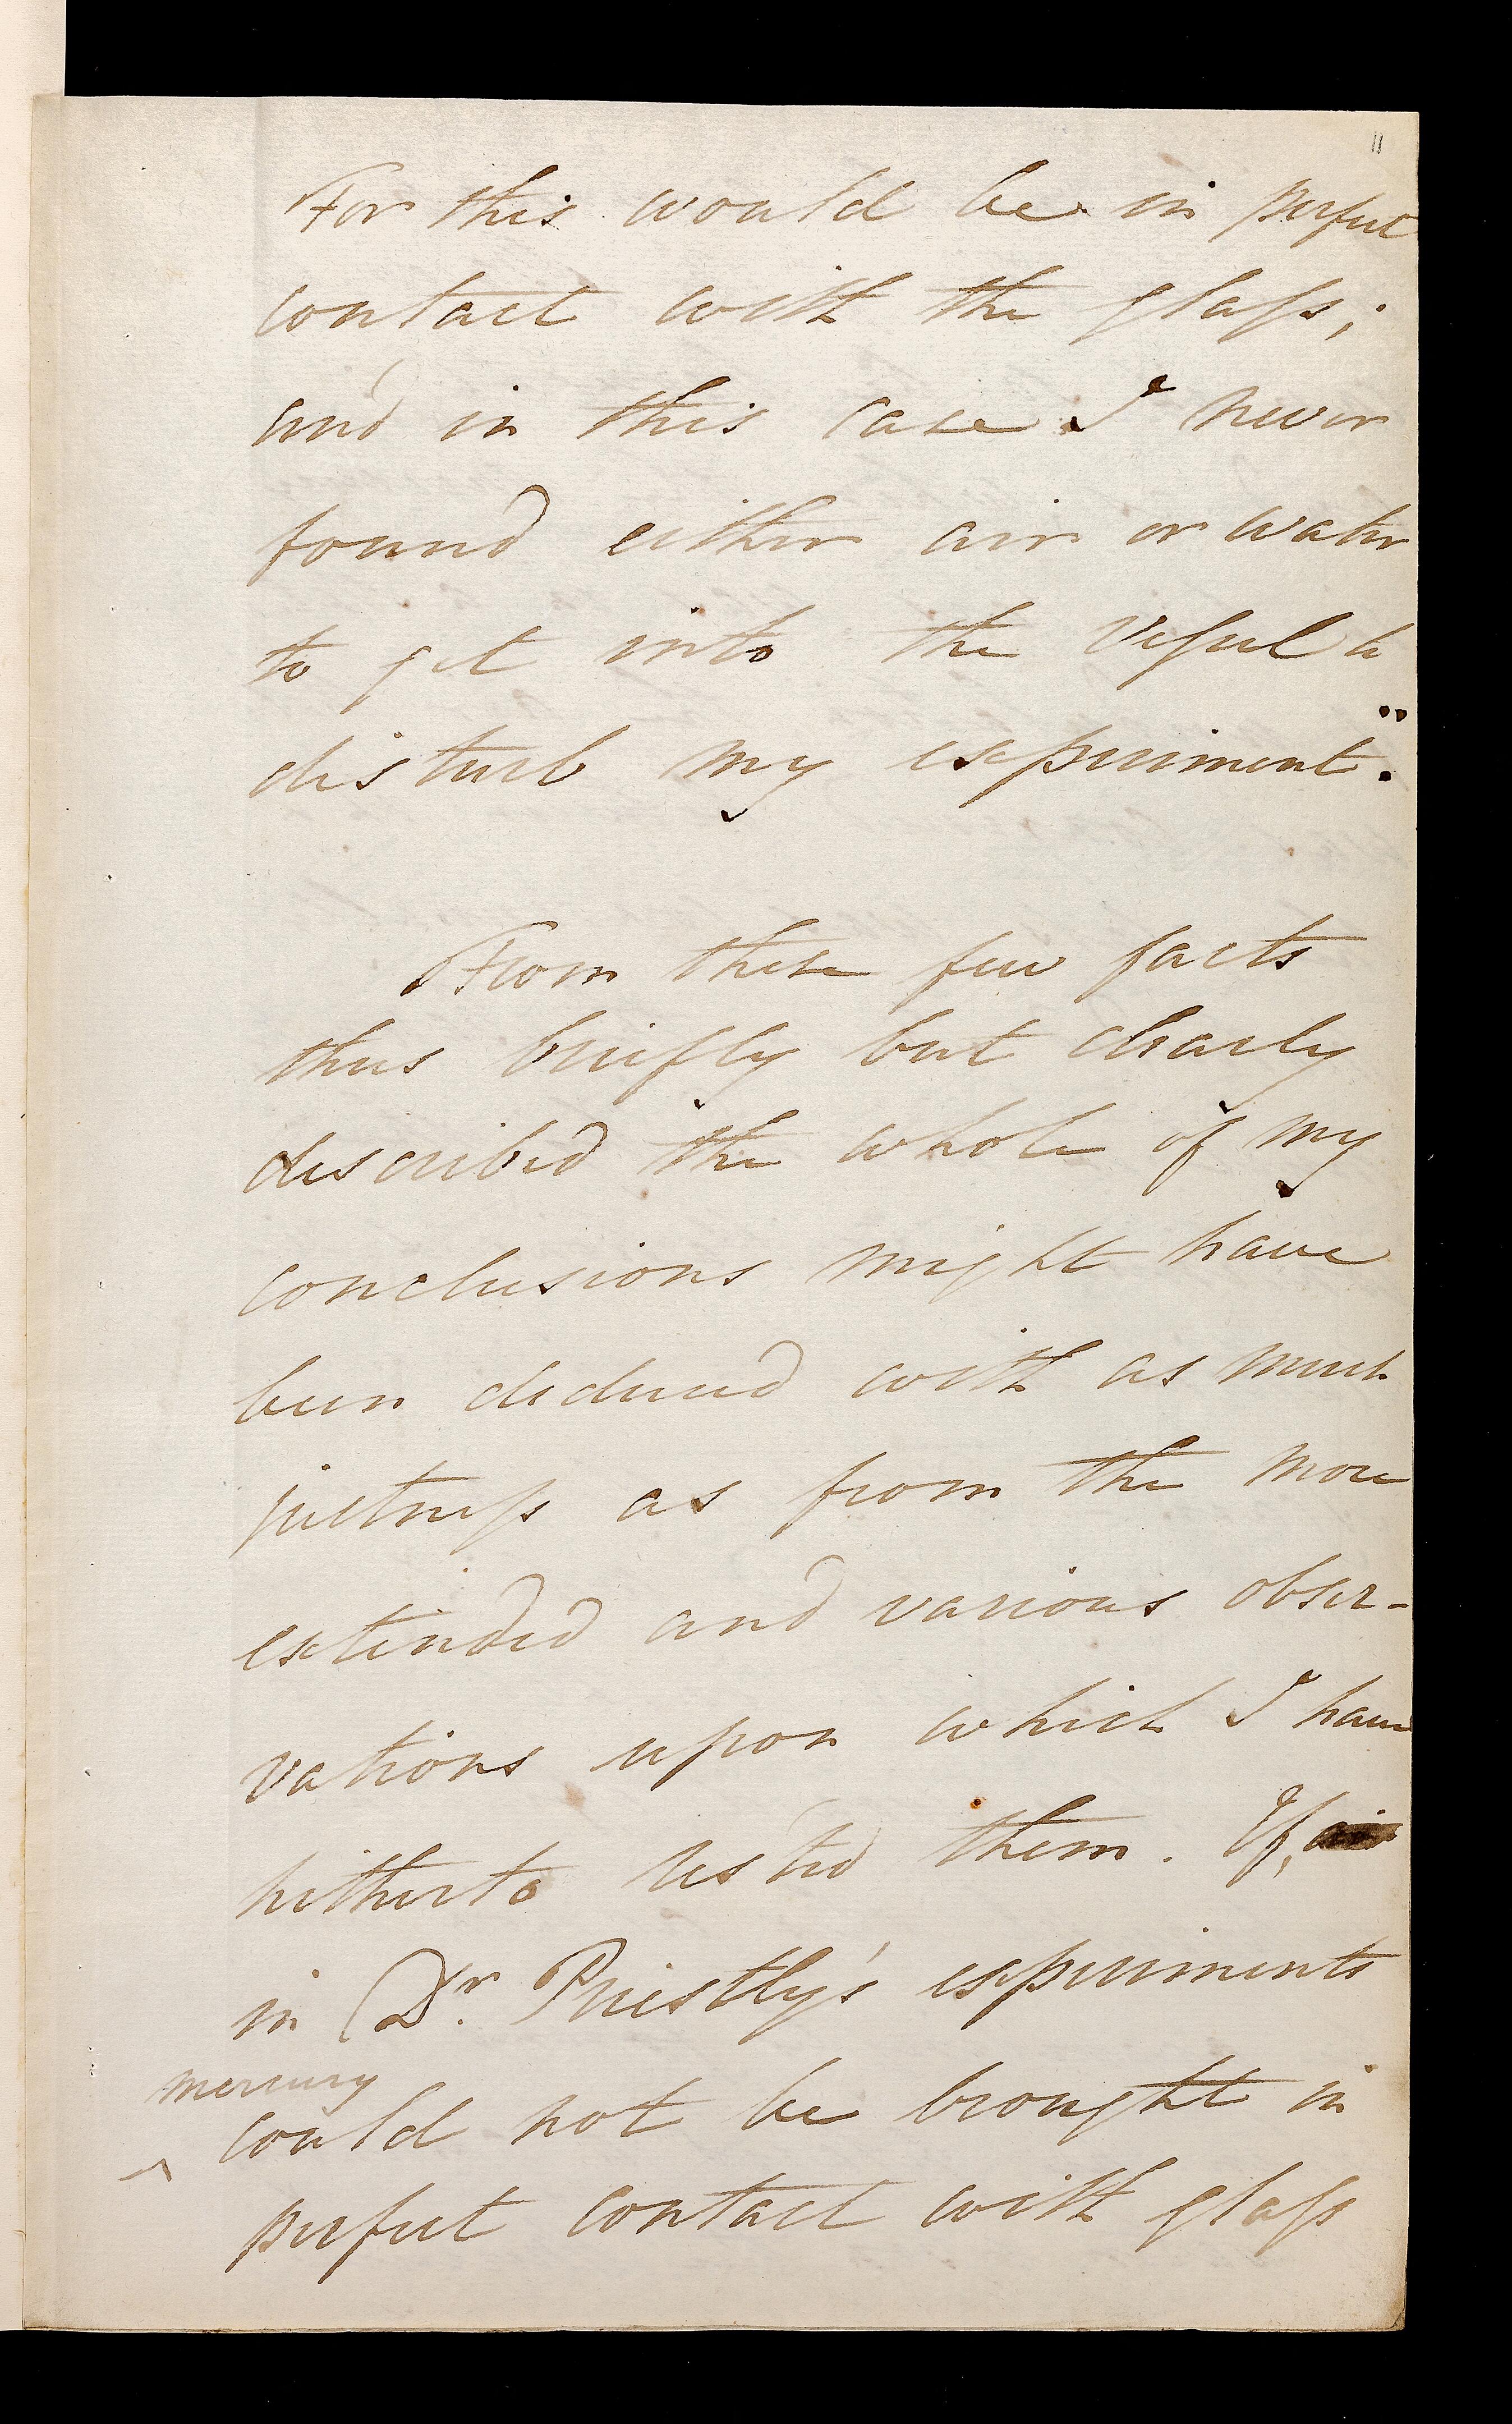 11
For this would be in perfect
contact with the glaſs;
and in this case I never
found either air or water
to get into the veſsel to
disturb my experiment."
From these few facts
thus briefly but clearly
described the whole of my
conclusions might have
been deduced with as much
justneſs as from the more
extended and various obser-
vations upon which I have
hitherto rested them. If,
in Dr. Priestly's experiments
mercury
could not be brought in
perfect contact with glaſs